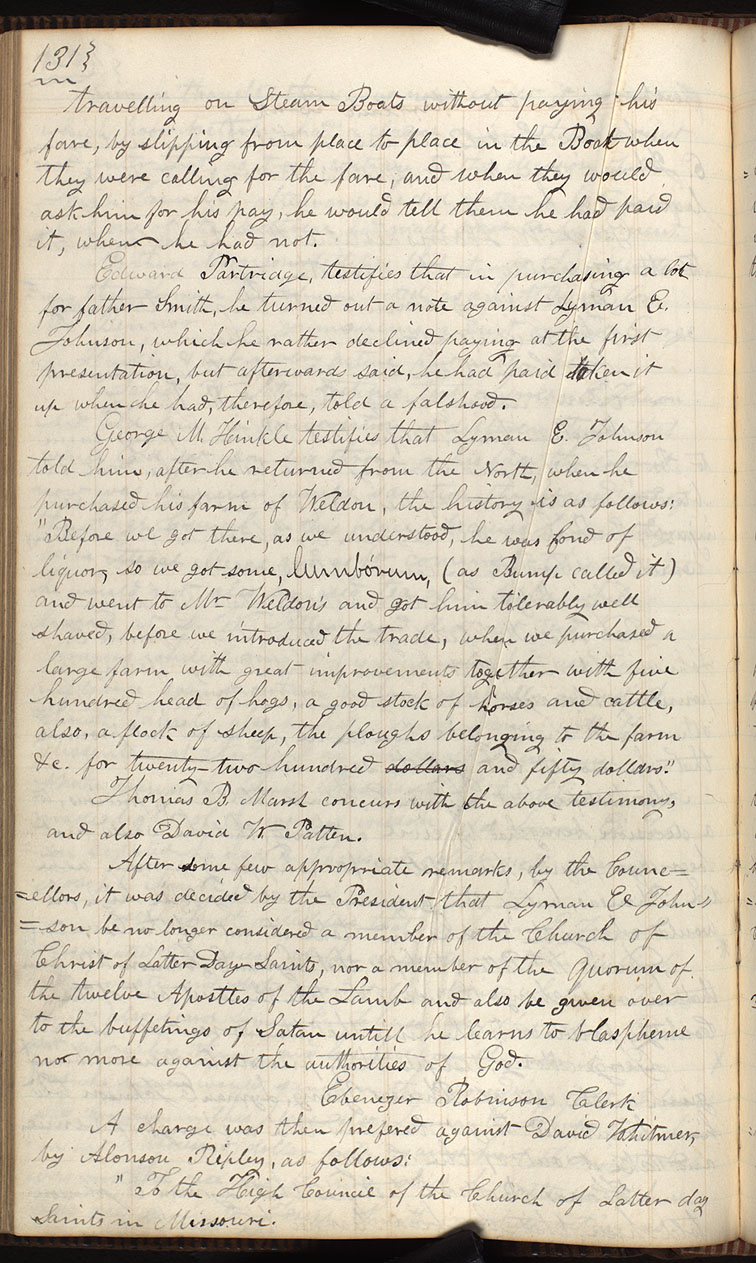 131}
travelling on Steam Boats without paying his
fare, by slipping from place to place in the Boat when
they were calling for the fare, and when they would
ask him for his pay, he would tell them he had paid
it, when he had not.
Edward Partridge, testifies that in purchasing a lot
for father Smith, he turned out a note against Lyman E.
Johnson, which he rather declined paying at the first
presentation, but afterwards said, he had paid it
up when he had, therefore, told a falshood.
George M. Hinkle testifies that Lyman E. Johnson
told him, after he returned from the North, when he
purchased his farm of Weldon, the history is as follows:
"Before we got there, as we understood, he was fond of
liquor, so we got some, lumbórum, (as Bump called it)
and went to Mr Weldon's and got him tolerably well
shaved, before we introduced the trade, when we purchased a
large farm with great improvements together with five
hundred head of hogs, a good stock of horses and cattle,
also, a flock of sheep, the ploughs belonging to the farm
&c. for twenty-two hundred dollars and fifty dollars."
Thomas B. Marsh concurs with the above testimony,
and also David W. Patten.
After some few appropriate remarks, by the Counc=
=ellors, it was decided by the President that Lyman E. John=
=son be no longer considered a member of the Church of
Christ of Latter Day Saints, nor a member of the Quorum of
the twelve Apostles of the Lamb and also be given over
to the buffetings of Satan untill he learns to blaspheme
no more against the authorities of God.
Ebenezer Robinson Clerk
A charge was then prefered against David Whitmer,
by Alonson Ripley, as follows:
"To the High Council of the Church of Latter day
Saints in Missouri.